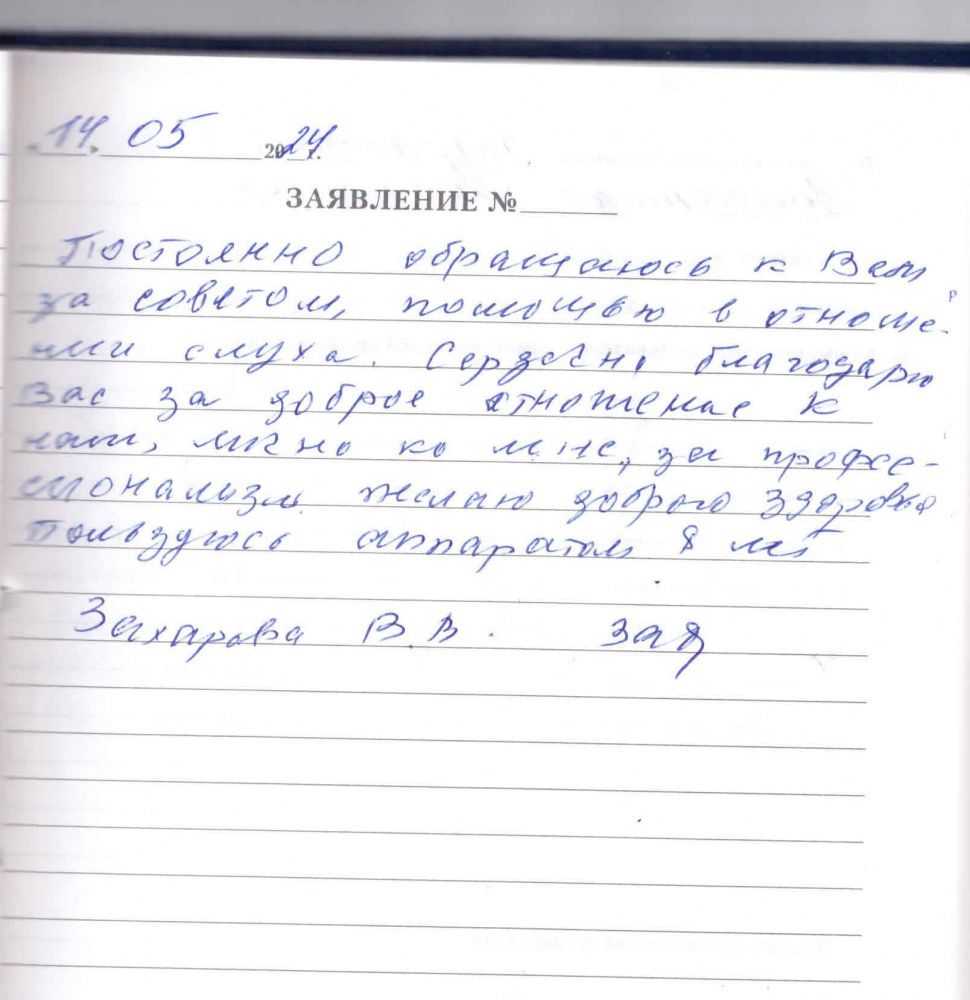 14 05 2024 г.
ЗАЯВЛЕНИЕ №
Постоянно обращаюсь к Вам
за советом, помощью в отноше-
нии слуха. Сердечно благодарю
Вас за доброе отношение к
нам, лично ко мне, за профес-
сионализм желаю доброго здоровья
Пользуюсь аппаратом 8 лет
Захарова В.В.